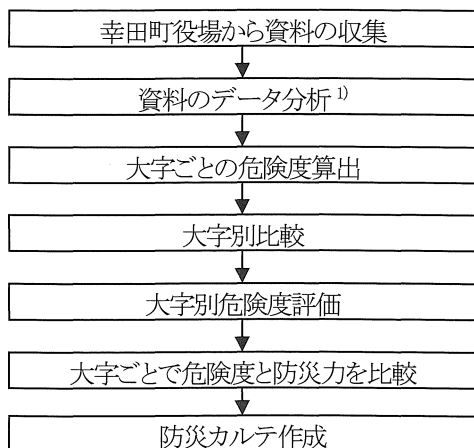 幸田町役場から資料の収集
資料のデータ分析1)
大字ごとの危険度算出
大字別比較
大字別危険度評価
大字ごとで危険度と防災力を比較
防災カルテ作成